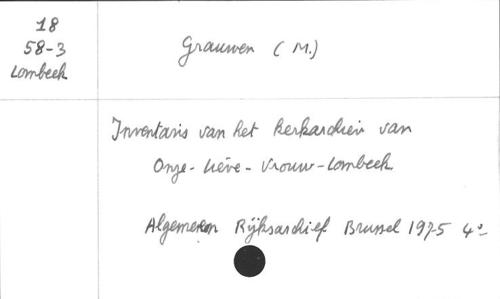 18
58-3
Lombeek
Grauwen (M.)
Inventaris van het kerkarchiev van
Onze-Lieve-Vrouw-Lombeek
Algemeen Rijksarchief Brussel 1975 4°